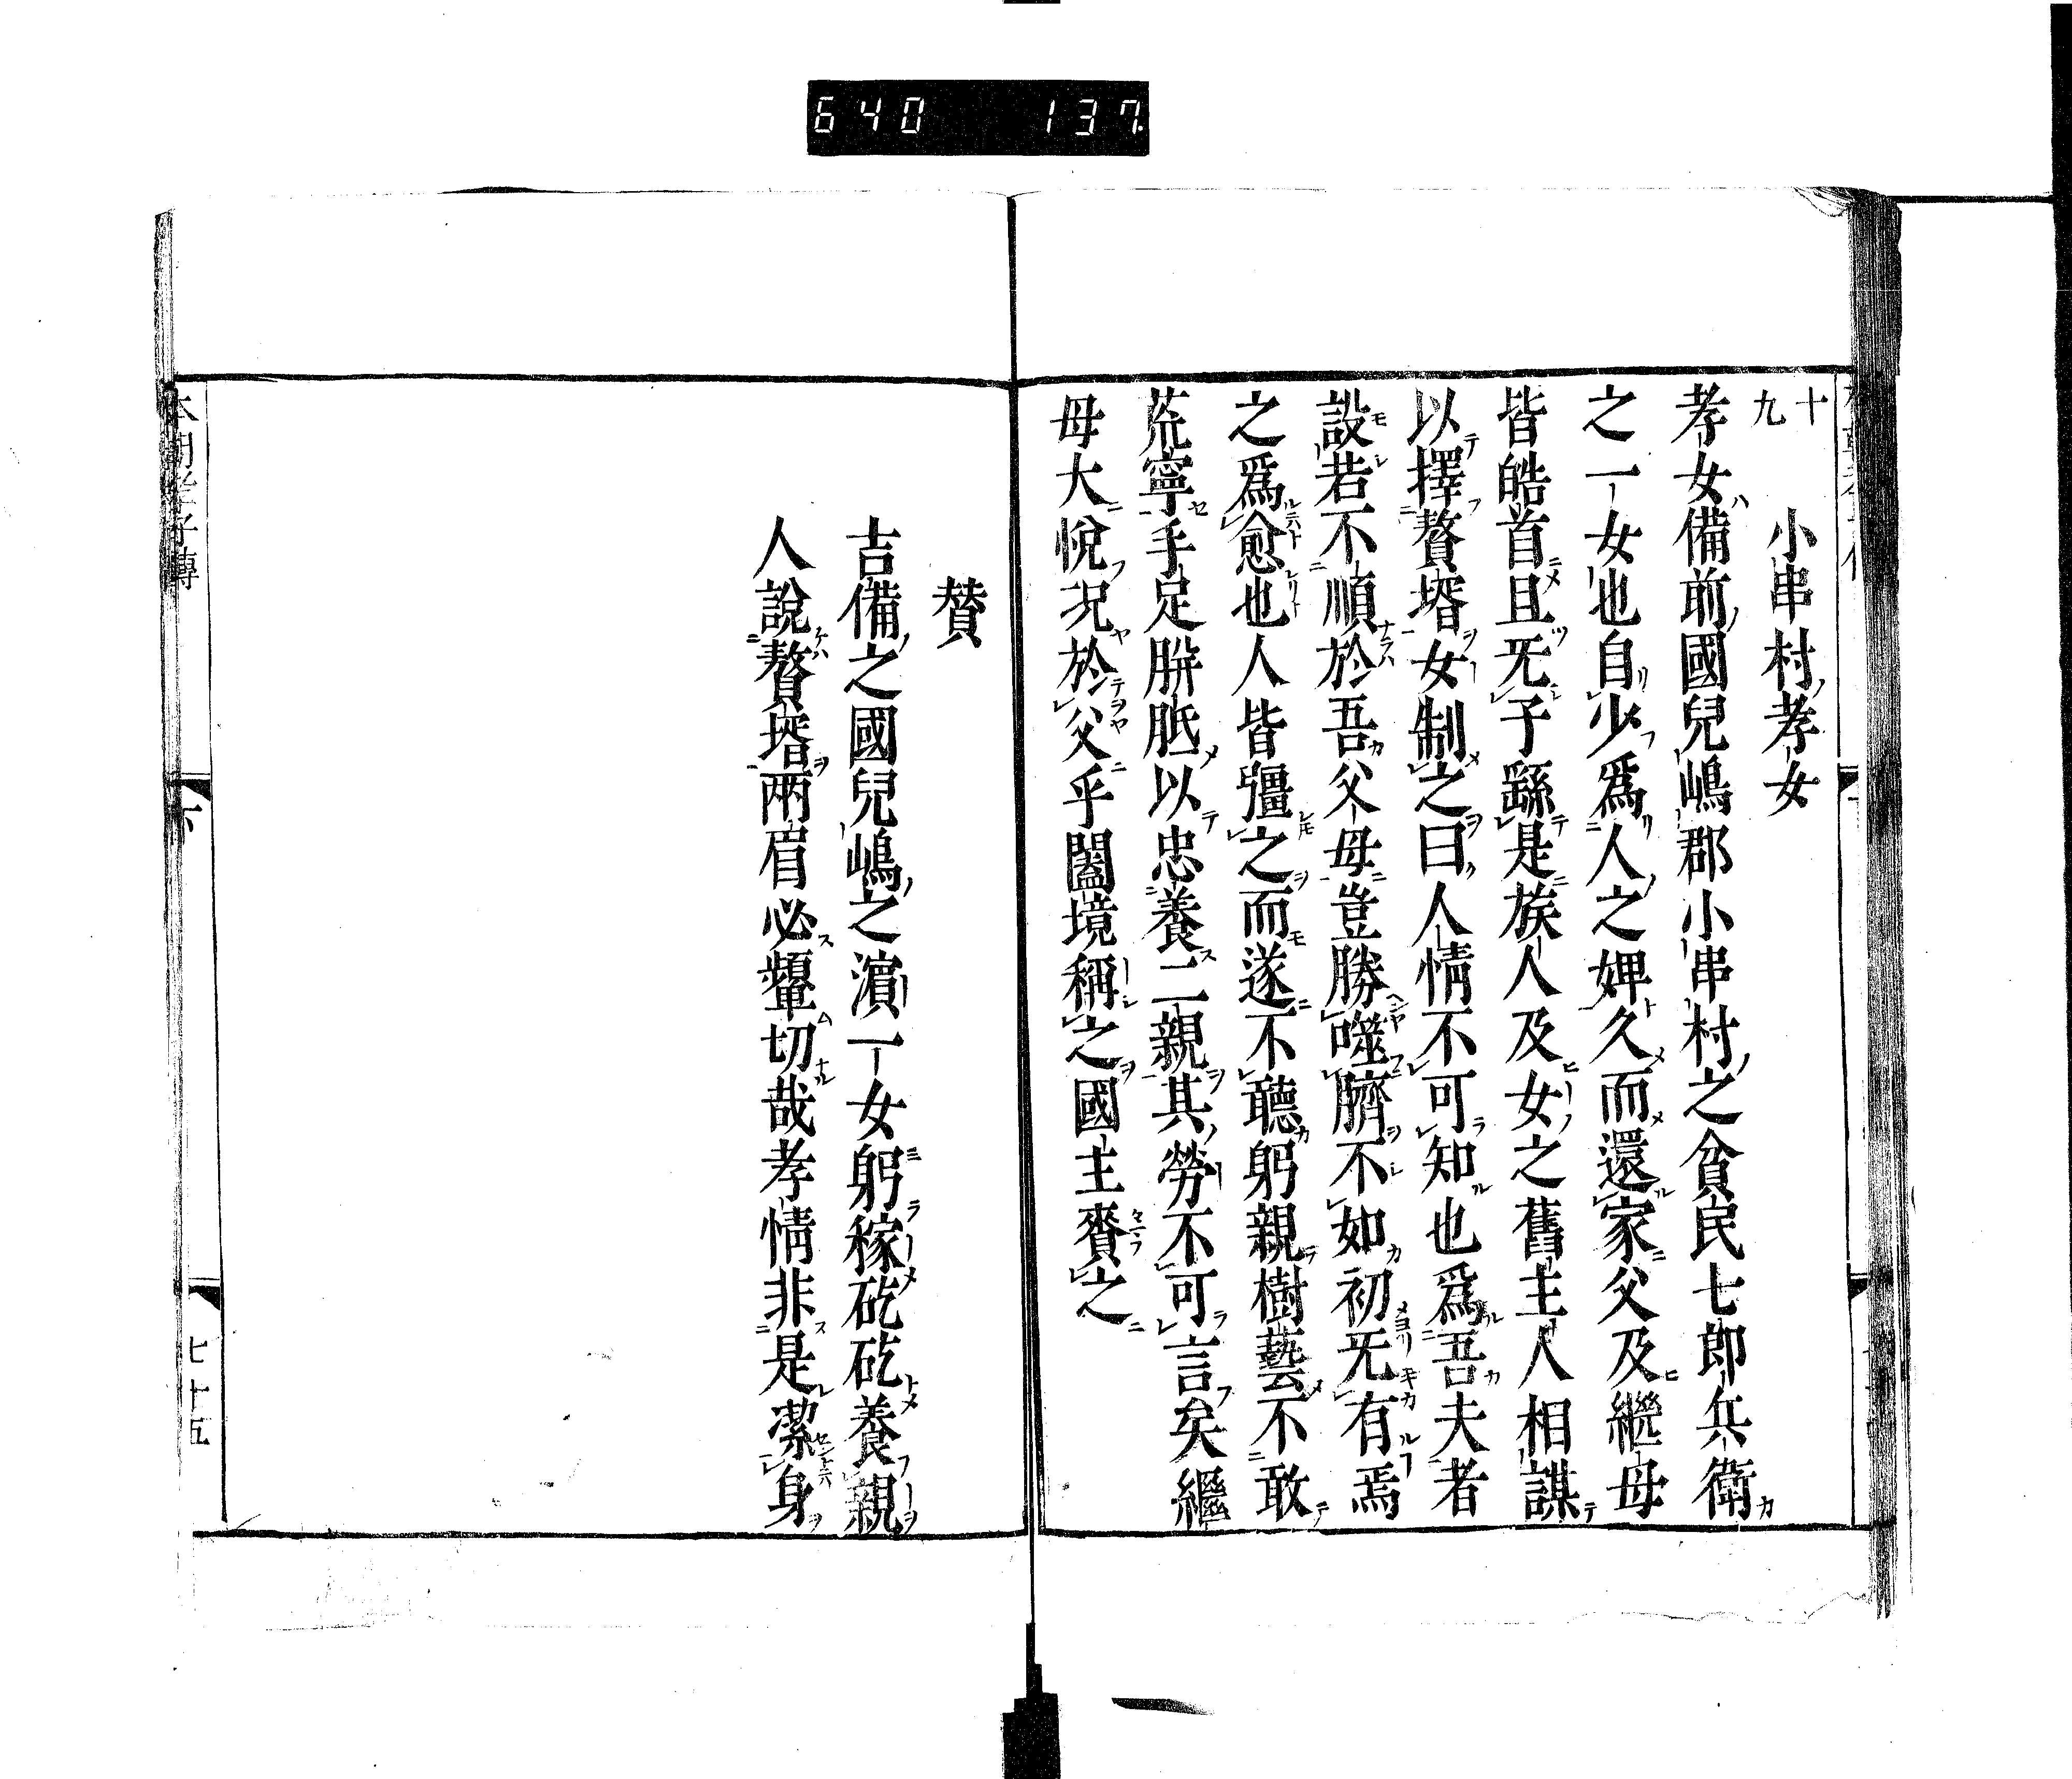 640 137.
十九 小串村孝女
孝女備前國兒嶋郡小串村之貧民七郎兵衛
之一女也自少爲人之婢久而還家父及繼母
皆皓首且旡子繇是族人及女之舊主人相謀
以擇贅壻女制之曰人情不可知也爲吾夫者
設若不順於吾父母豈勝噬臍不如初旡有焉
之爲愈也人皆彊之而遂不聽躬親樹藝不敢
荒寧手足胼胝以忠養二親其勞不可言矣繼
母大悅况於父乎闔境稱之國主賚之
贊
吉備之國兒嶋之濵一女躬稼矻矻養親
人說贅壻兩眉必顰切哉孝情非是潔身
本朝孝子傳 下 七十五